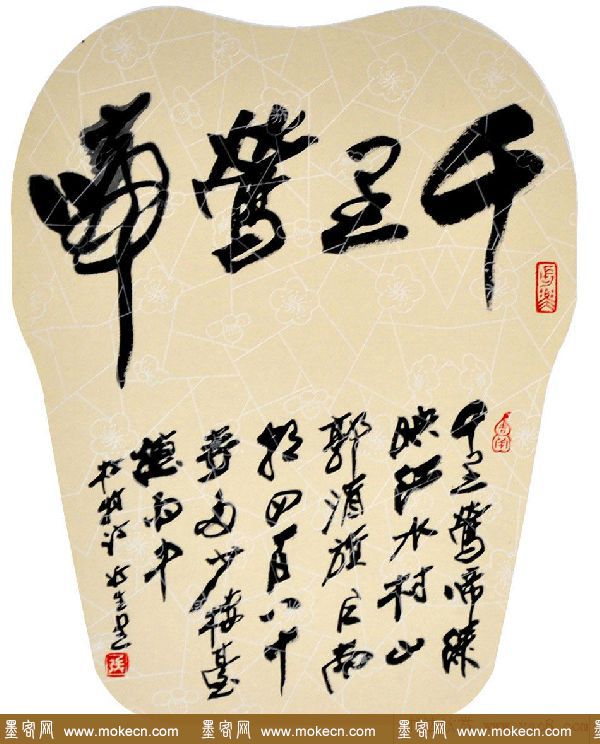 千里鶯啼
千里鶯啼綠
映紅水村山
郭酒旗風南
朝四百八十
寺多少樓臺
煙雨中
杜牧詩
墨客网 www.mokecn.com 墨客网 www.mokecn.com 墨客网 www.mokecn.com